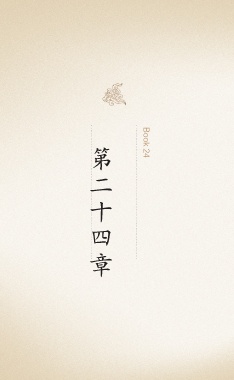 Book 24
第二十四章